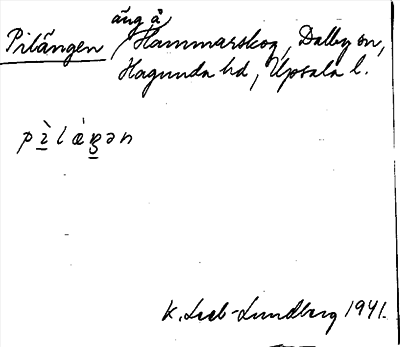 äng å
Pilängen / Hammarskog, Dalby sn,
Hagunda hd, Upsala l.
pìlæ̀ŋən
K. Leeb-Lundberg 1941.